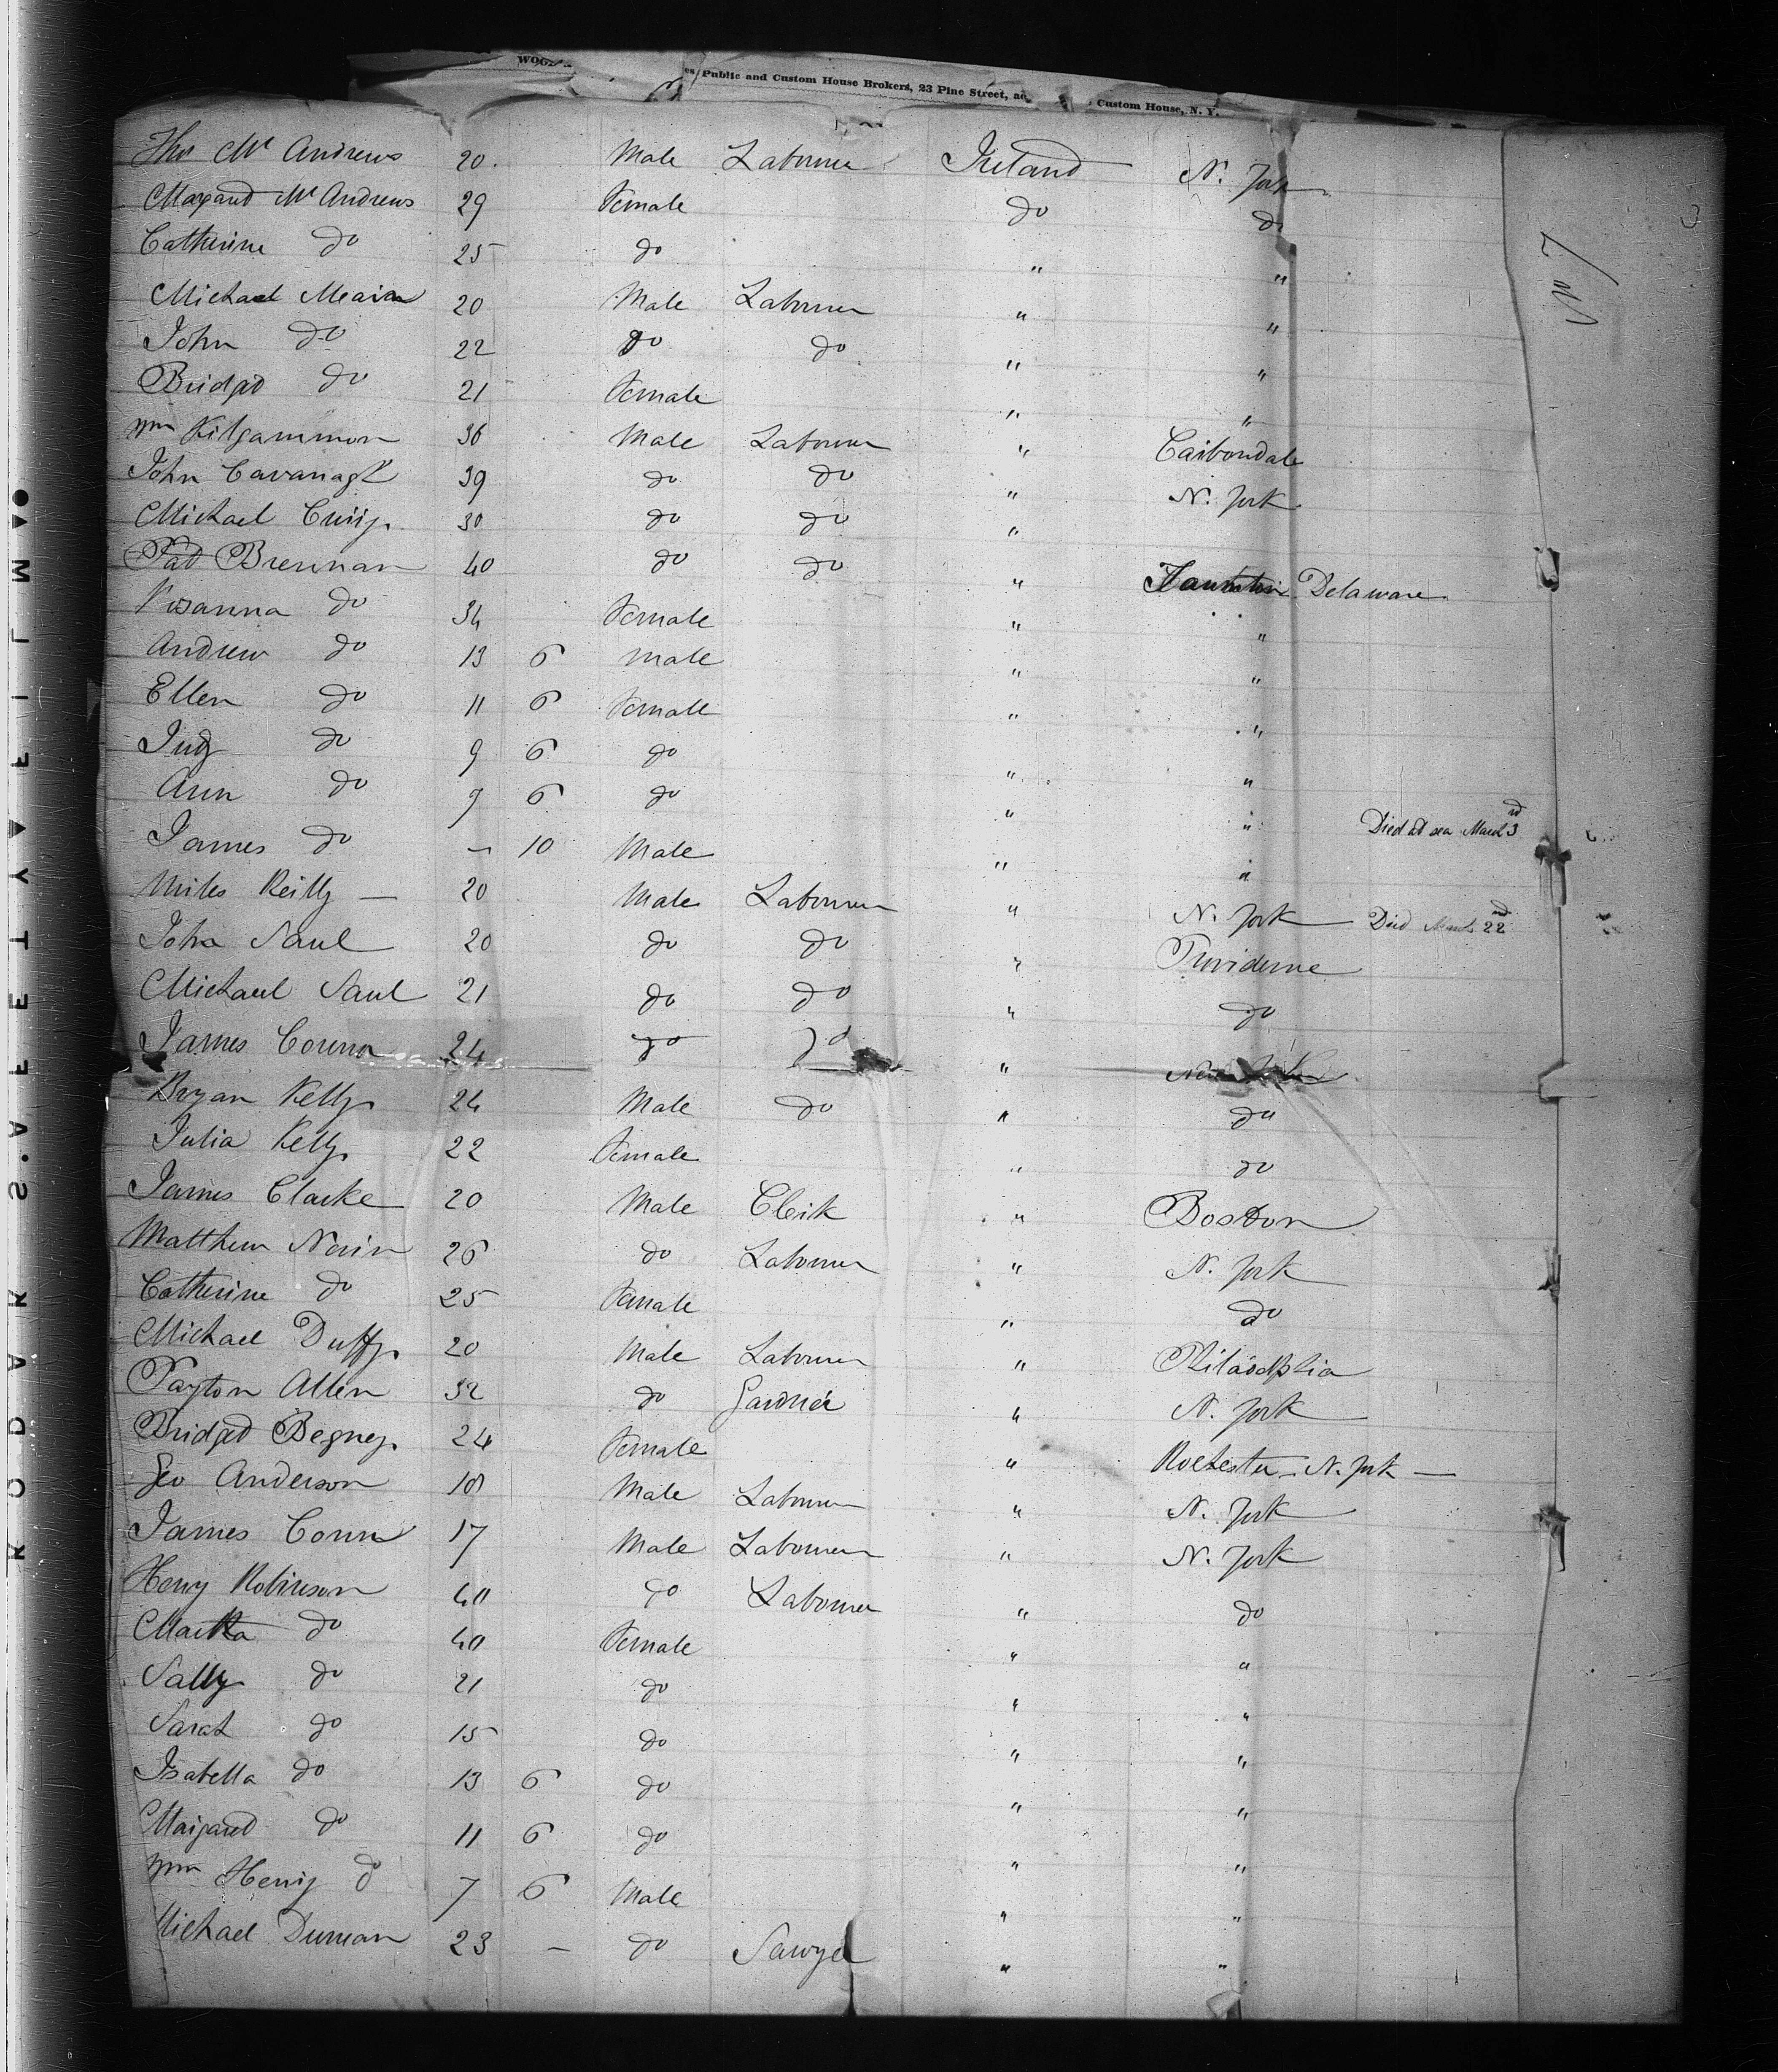 es Public and Custom House Brokers, 23 Pine Street, Custom House, N. Y.
Thos Mc Andrews 20 Male Labourer Ireland N. York
Margaret Mc Andrews 29 Female do do
Catherine do 25 do " "
Michael 20 Male Labourer " "
John do 22 do do " "
Bridget do 21 Female " "
Wm Kilgammon 36 Male Labourer " Carbondale
John Cavanagh 39 do do " N. York
Michael 30 do do "
Pat Brennan 40 do do " Delaware
Rosanna do 34 Female " "
Andrew do 13 6 Male " "
Ellen do 11 6 Female " "
Judy do 9 6 do " "
Ann do 7 6 do " " Died at sea March 3rd
James do — 10 Male " "
Miles Reilly — 20 Male Labourer " N. York Died March 22nd
John Saul 20 do do " Providence
Michael Saul 21 do do " do
James 24 do do " New York
Bryan Kelly 24 Male do " do
Julia Kelly 22 Female " do
James Clarke 20 Male Clerk " Boston
Matthew Nairn 26 do Labourer " N. York
Catherine do 25 Female " do
Michael Duffy 20 Male Labourer " Philadelphia
Payton Allen 32 do Gardner " N. York
Bridget Begney 24 Female " Rochester N. York —
Geo Anderson 18 Male Labourer " N. York
James Conn 17 Male Labourer " N. York
Henry Robinson 40 do Labourer " do
Martha do 40 Female " "
Sally do 21 do " "
Sarah do 15 do " "
Isabella do 13 6 do " "
Margaret do 11 6 do " "
Wm Henry do 7 6 Male " "
Michael Durnan 23 — do Sawyer " "